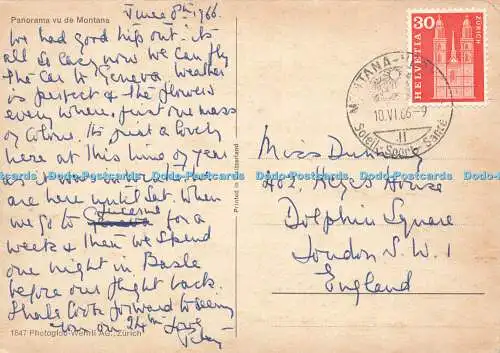 Panorama vu de Montana
June 8th, 1966.
We had good trip out. its
all so easy now we can fly
the car to Geneva. Weather
is perfect & the flowers
every where, just one mass
of colour. Its just a lovely
here at this time of year
as
are here until Sat. When
we go to Geneva Lucerne for a
week & then we spend
one night in Basle
before our flight back.
Shall look forward to seeing
you on 24th love
1847 Photoglob-Wehrli AG., Zürich
Printed in Switzerland
MONTANA-V
10.VI.66-9
Soleil-Sports-Santé
30
HELVETIA
ZÜRICH
Miss Dunning
402. Keyes House
Dolphin Square
London S.W.1
England
Dodo-Postcards